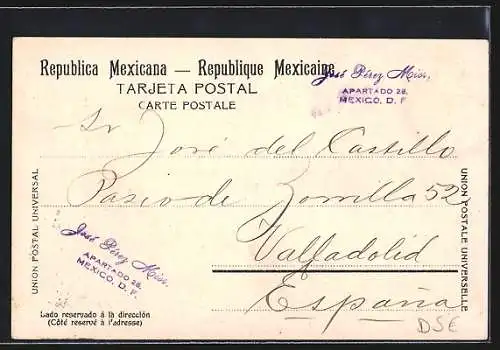 Republica Mexicana — Republique Mexicaine
TARJETA POSTAL
CARTE POSTALE
José Pérez
APARTADO 28.
MEXICO, D. F.
Sr José del Castillo
Paseo de Zorrilla 52
Valladolid
España
UNION POSTAL UNIVERSAL
UNION POSTALE UNIVERSELLE
José Pérez
APARTADO 28.
MEXICO, D. F.
Lado reservado á la dirección
(Côté reservé à l'adresse)
DSE